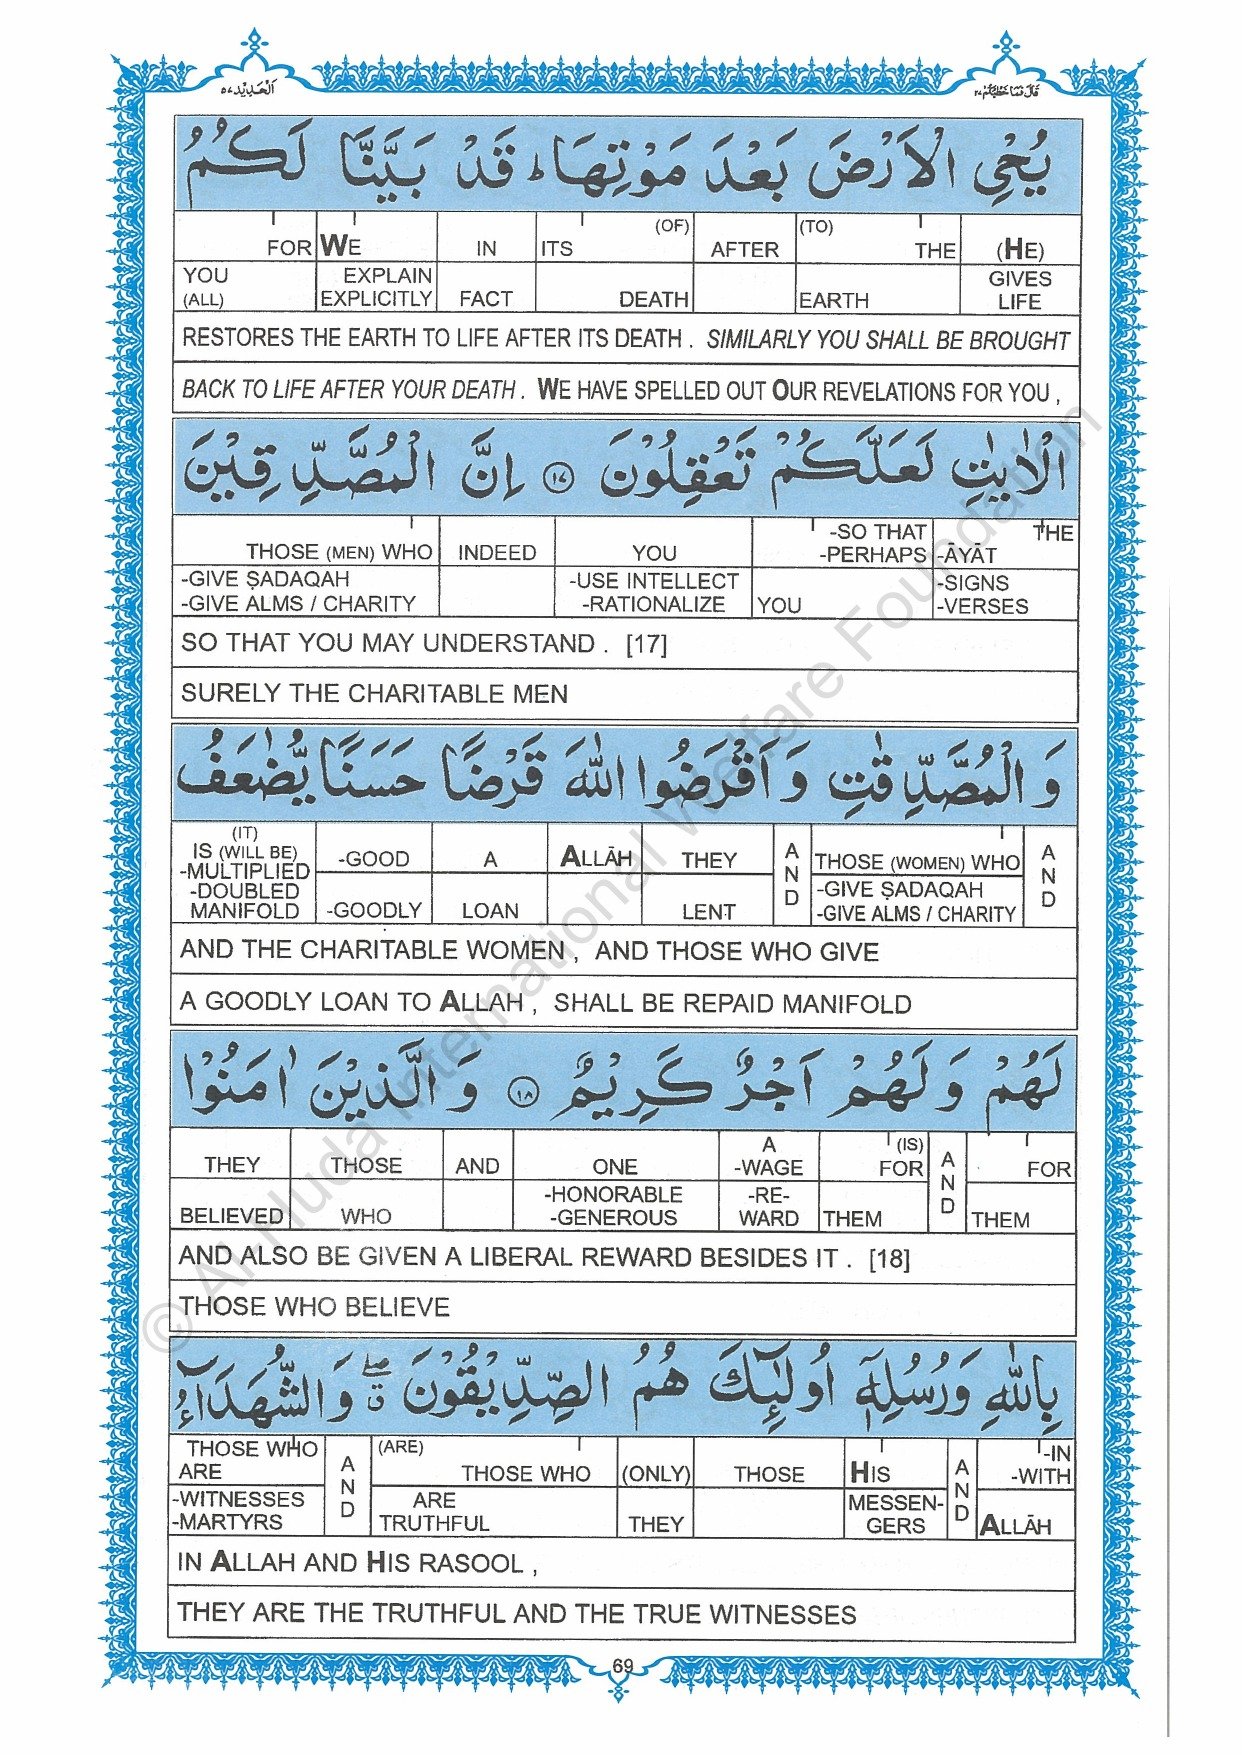 قَالَ فَمَا خَطْبُكُمْ ٢٧
اَلْحَدِيْد ٥٧
يُحْيِ الْاَرْضَ بَعْدَ مَوْتِهَا ؕ قَدْ بَيَّنَّا لَكُمُ
(HE) GIVES LIFE
(TO) THE EARTH
AFTER
(OF) ITS DEATH
IN FACT
WE EXPLAIN EXPLICITLY
FOR YOU (ALL)
RESTORES THE EARTH TO LIFE AFTER ITS DEATH . SIMILARLY YOU SHALL BE BROUGHT
BACK TO LIFE AFTER YOUR DEATH . WE HAVE SPELLED OUT OUR REVELATIONS FOR YOU ,
الْاٰيٰتِ لَعَلَّكُمْ تَعْقِلُوْنَ ١٧ اِنَّ الْمُصَّدِّقِيْنَ
THE -ĀYĀT -SIGNS -VERSES
-SO THAT -PERHAPS YOU
YOU -USE INTELLECT -RATIONALIZE
INDEED
THOSE (MEN) WHO -GIVE ṢADAQAH -GIVE ALMS / CHARITY
SO THAT YOU MAY UNDERSTAND . [17]
SURELY THE CHARITABLE MEN
وَالْمُصَّدِّقٰتِ وَاَقْرَضُوا اللّٰهَ قَرْضًا حَسَنًا يُّضٰعَفُ
AND
THOSE (WOMEN) WHO -GIVE ṢADAQAH -GIVE ALMS / CHARITY
AND
THEY LENT
ALLĀH
A LOAN
-GOOD -GOODLY
(IT) IS (WILL BE) -MULTIPLIED -DOUBLED MANIFOLD
AND THE CHARITABLE WOMEN , AND THOSE WHO GIVE
A GOODLY LOAN TO ALLAH , SHALL BE REPAID MANIFOLD
لَهُمْ وَلَهُمْ اَجْرٌ كَرِيْمٌ ١٨ وَالَّذِيْنَ اٰمَنُوْا
FOR THEM
AND
(IS) FOR THEM
A -WAGE -RE-WARD
ONE -HONORABLE -GENEROUS
AND
THOSE WHO
THEY BELIEVED
AND ALSO BE GIVEN A LIBERAL REWARD BESIDES IT . [18]
THOSE WHO BELIEVE
بِاللّٰهِ وَرُسُلِهٖۤ اُولٰٓئِكَ هُمُ الصِّدِّيْقُوْنَ ۖۗ وَالشُّهَدَآءُ
-IN -WITH ALLĀH
AND
HIS MESSEN-GERS
THOSE
(ONLY) THEY
(ARE) THOSE WHO ARE TRUTHFUL
AND
THOSE WHO ARE -WITNESSES -MARTYRS
IN ALLAH AND HIS RASOOL ,
THEY ARE THE TRUTHFUL AND THE TRUE WITNESSES
69
© Al-Huda International Welfare Foundation